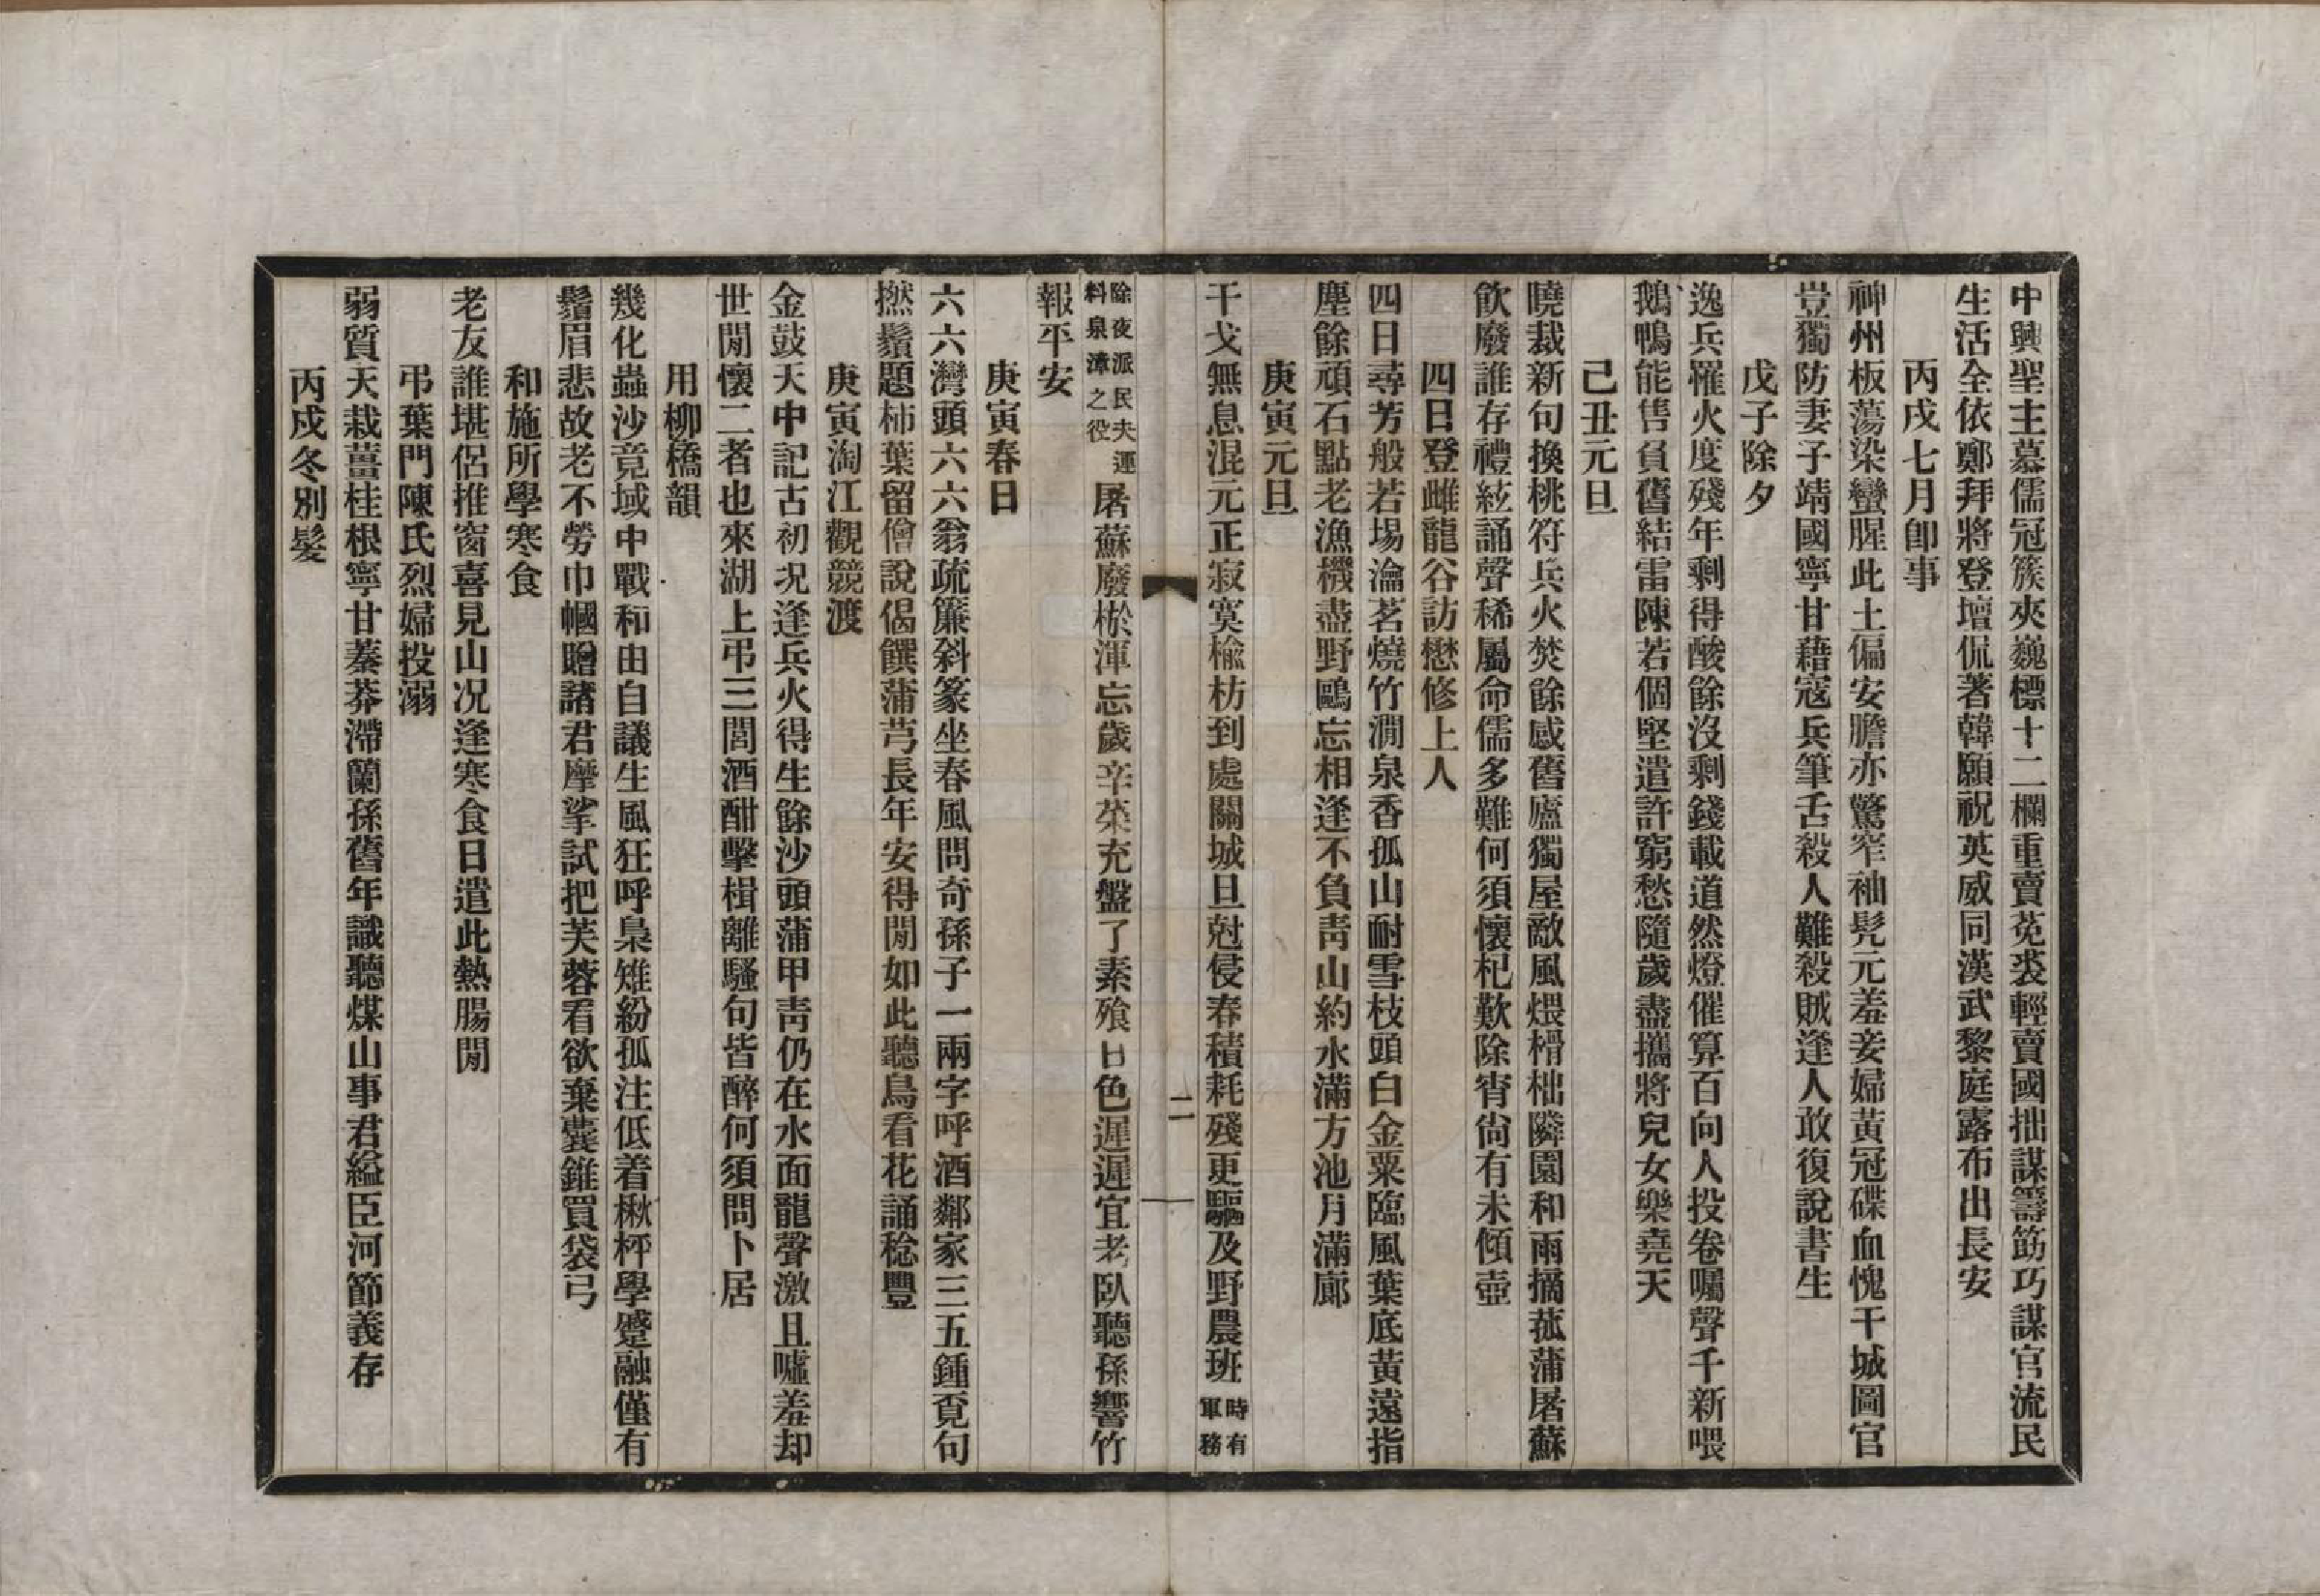 中興聖主慕儒冠簇夾巍標十二欄重賣菟裘輕賣國拙謀籌筯巧謀官流民
生活全依鄭拜將登壇侃著韓願祝英威同漢武黎庭露布出長安
丙戌七月卽事
神州板蕩染蠻腥此土偏安膽亦驚窄袖髠元羞妾婦黃冠磔血愧干城圖官
豈獨防妻子靖國寧甘藉寇兵筆舌殺人難殺賊逢人敢復說書生
戊子除夕
逸兵罹火度殘年剩得酸餘沒剩錢載道然燈催算百向人投卷囑聲千新喂
鵝鴨能售負舊結雷陳若個堅遣許窮愁隨歲盡攜將兒女樂堯天
己丑元旦
曉裁新句換桃符兵火焚餘感舊廬獨屋敵風煨榾柮隣園和雨摘菰蒲屠蘇
飮廢誰存禮絃誦聲稀屬命儒多難何須懷杞歎除宵尙有未傾壺
四日登雌龍谷訪懋修上人
四日尋芳般若場瀹茗燒竹澗泉香孤山耐雪枝頭白金粟臨風葉底黃遠指
塵餘頑石點老漁機盡野鷗忘相逢不負靑山約水滿方池月滿廊
庚寅元旦
干戈無息混元正寂寞楡枋到處關城旦尅侵春積耗殘更驅及野農班時有軍務
二
除夜派民夫運料泉漳之役屠蘇廢棜渾忘歲辛菜充盤了素飱日色遲遲宜老臥聽孫響竹
報平安
庚寅春日
六六灣頭六六翁疏簾斜篆坐春風問奇孫子一兩字呼酒鄰家三五鍾覔句
撚鬚題柿葉留僧說偈饌蒲芎長年安得閒如此聽鳥看花誦稔豐
庚寅淘江觀競渡
金鼓天中記古初况逢兵火得生餘沙頭蒲甲靑仍在水面龍聲激且噓羞却
世閒懷二者也來湖上弔三閭酒酣擊楫離騷句皆醉何須問卜居
用柳橋韻
幾化蟲沙竟域中戰和由自議生風狂呼梟雉紛孤注低着楸枰學蹙融僅有
鬚眉悲故老不勞巾幗贈諸君摩挲試把芙蓉看欲棄囊錐買袋弓
和施所學寒食
老友誰堪侶推窗喜見山况逢寒食日遣此熱腸閒
弔葉門陳氏烈婦投溺
弱質天栽薑桂根寧甘蓁莽滯蘭孫舊年識聽煤山事君縊臣河節義存
丙戍冬別髮